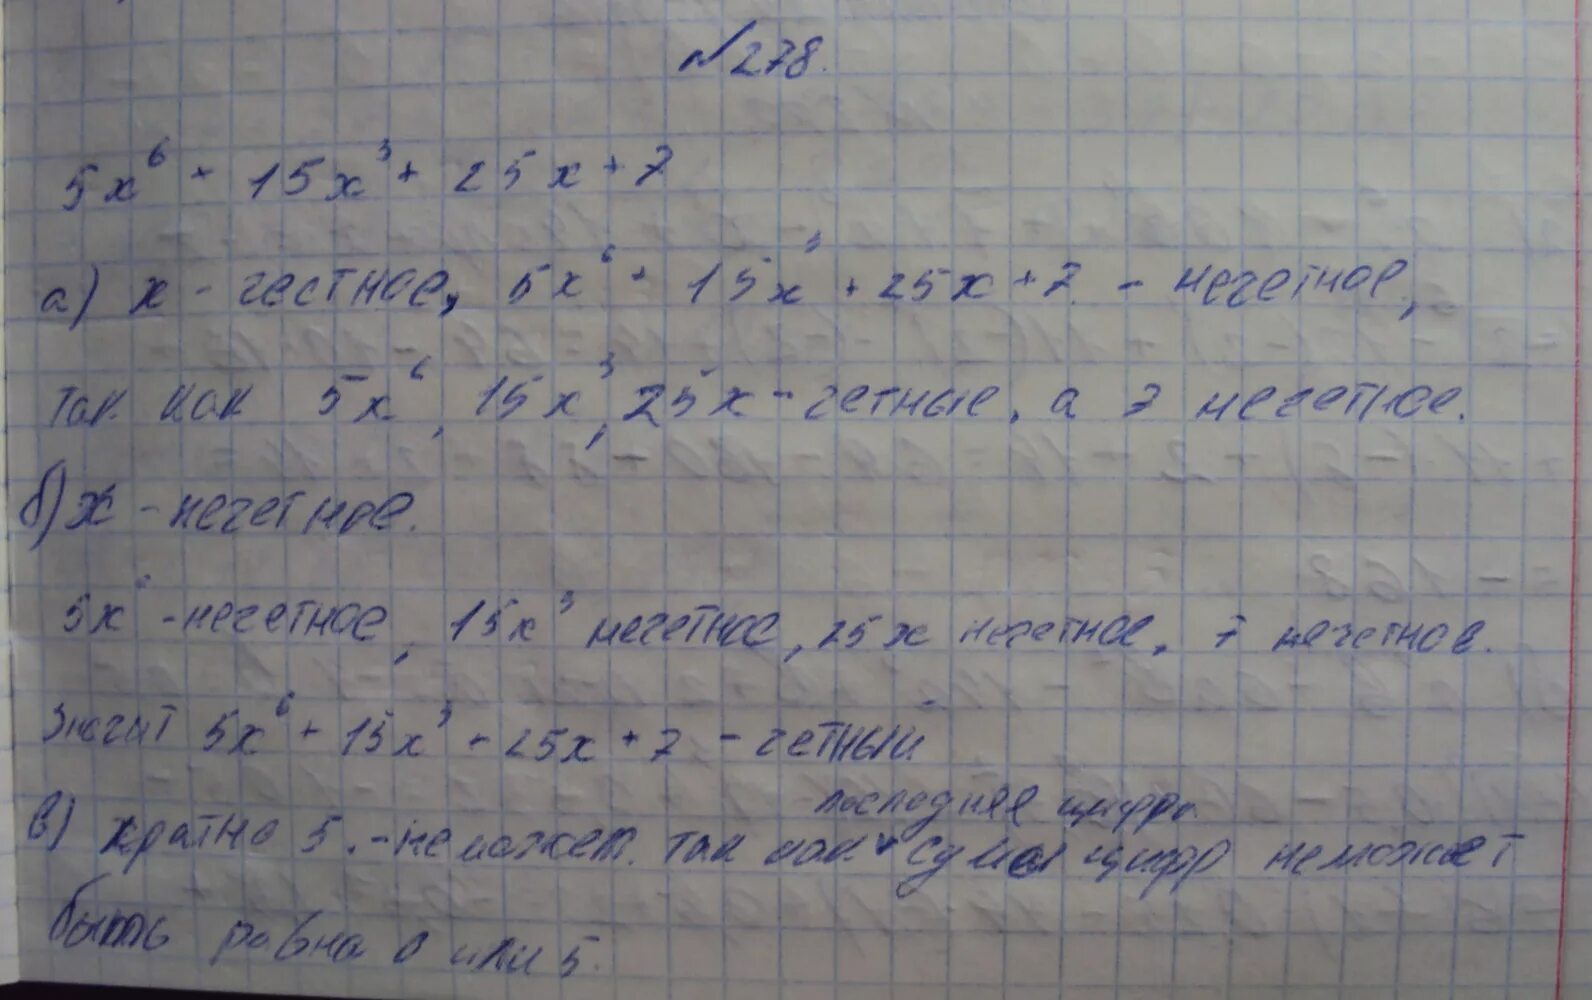 №278.
5x⁶ + 15x³ + 25x + 7
а) x - честное, 5x⁶ + 15x³ + 25x + 7 - нечетное,
так как 5x⁶, 15x³, 25x - четные, а 7 нечетное.
б) x - нечетное.
5x⁶ - нечетное, 15x³ нечетное, 25x нечетное, 7 нечетное.
Значит 5x⁶ + 15x³ + 25x + 7 - четный
последняя цифра
в) кратно 5. - не может. так как ˅ сумма цифр не может
быть равна 0 или 5.